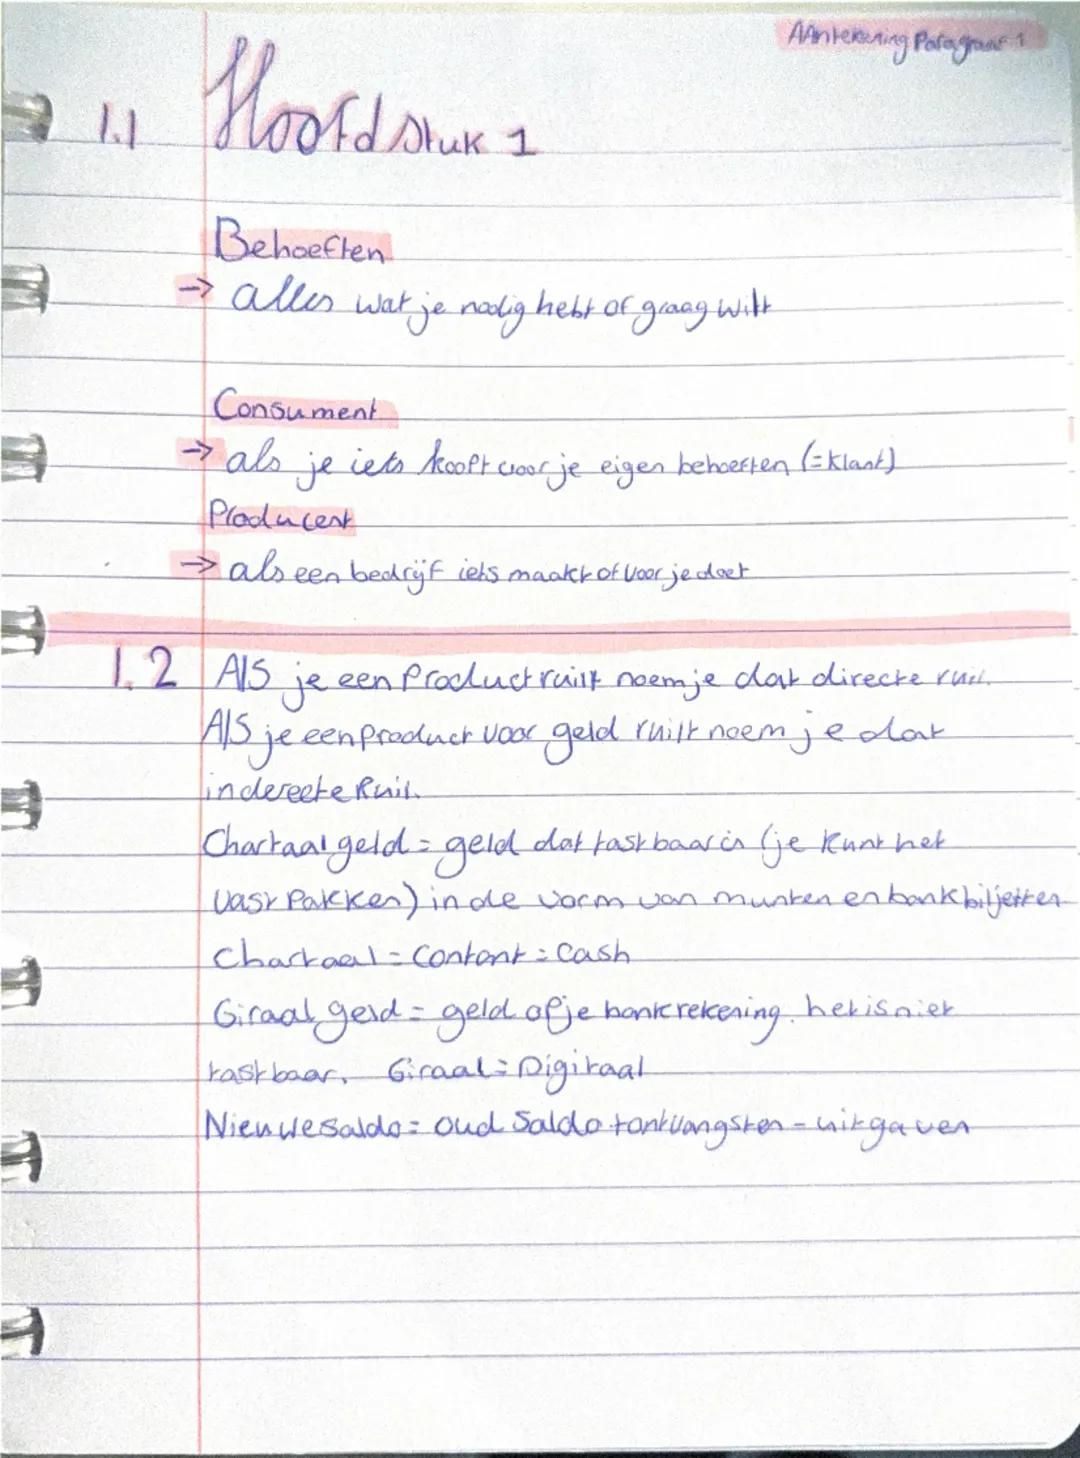 AAntekening Paragraaf 1
1.1 Hoofdstuk 1
Behoeften
→ alles wat je nodig hebt of graag wilt
Consument
→ als je iets koopt voor je eigen behoeften (=klant)
Producent
→ als een bedrijf iets maakt of voor je doet
1.2 Als je een product ruilt noem je dat directe ruil.
Als je een product voor geld ruilt noem je dat
indereete Ruil.
Chartaal geld = geld dat tastbaar is (je kunt het
vast pakken) in de vorm van munten en bankbiljetten
Chartaal = Contant = Cash
Giraal geld = geld op je bankrekening. het is niet
tastbaar. Giraal = Digitaal
Nieuwe saldo = oud saldo + ontvangsten - uitgaven